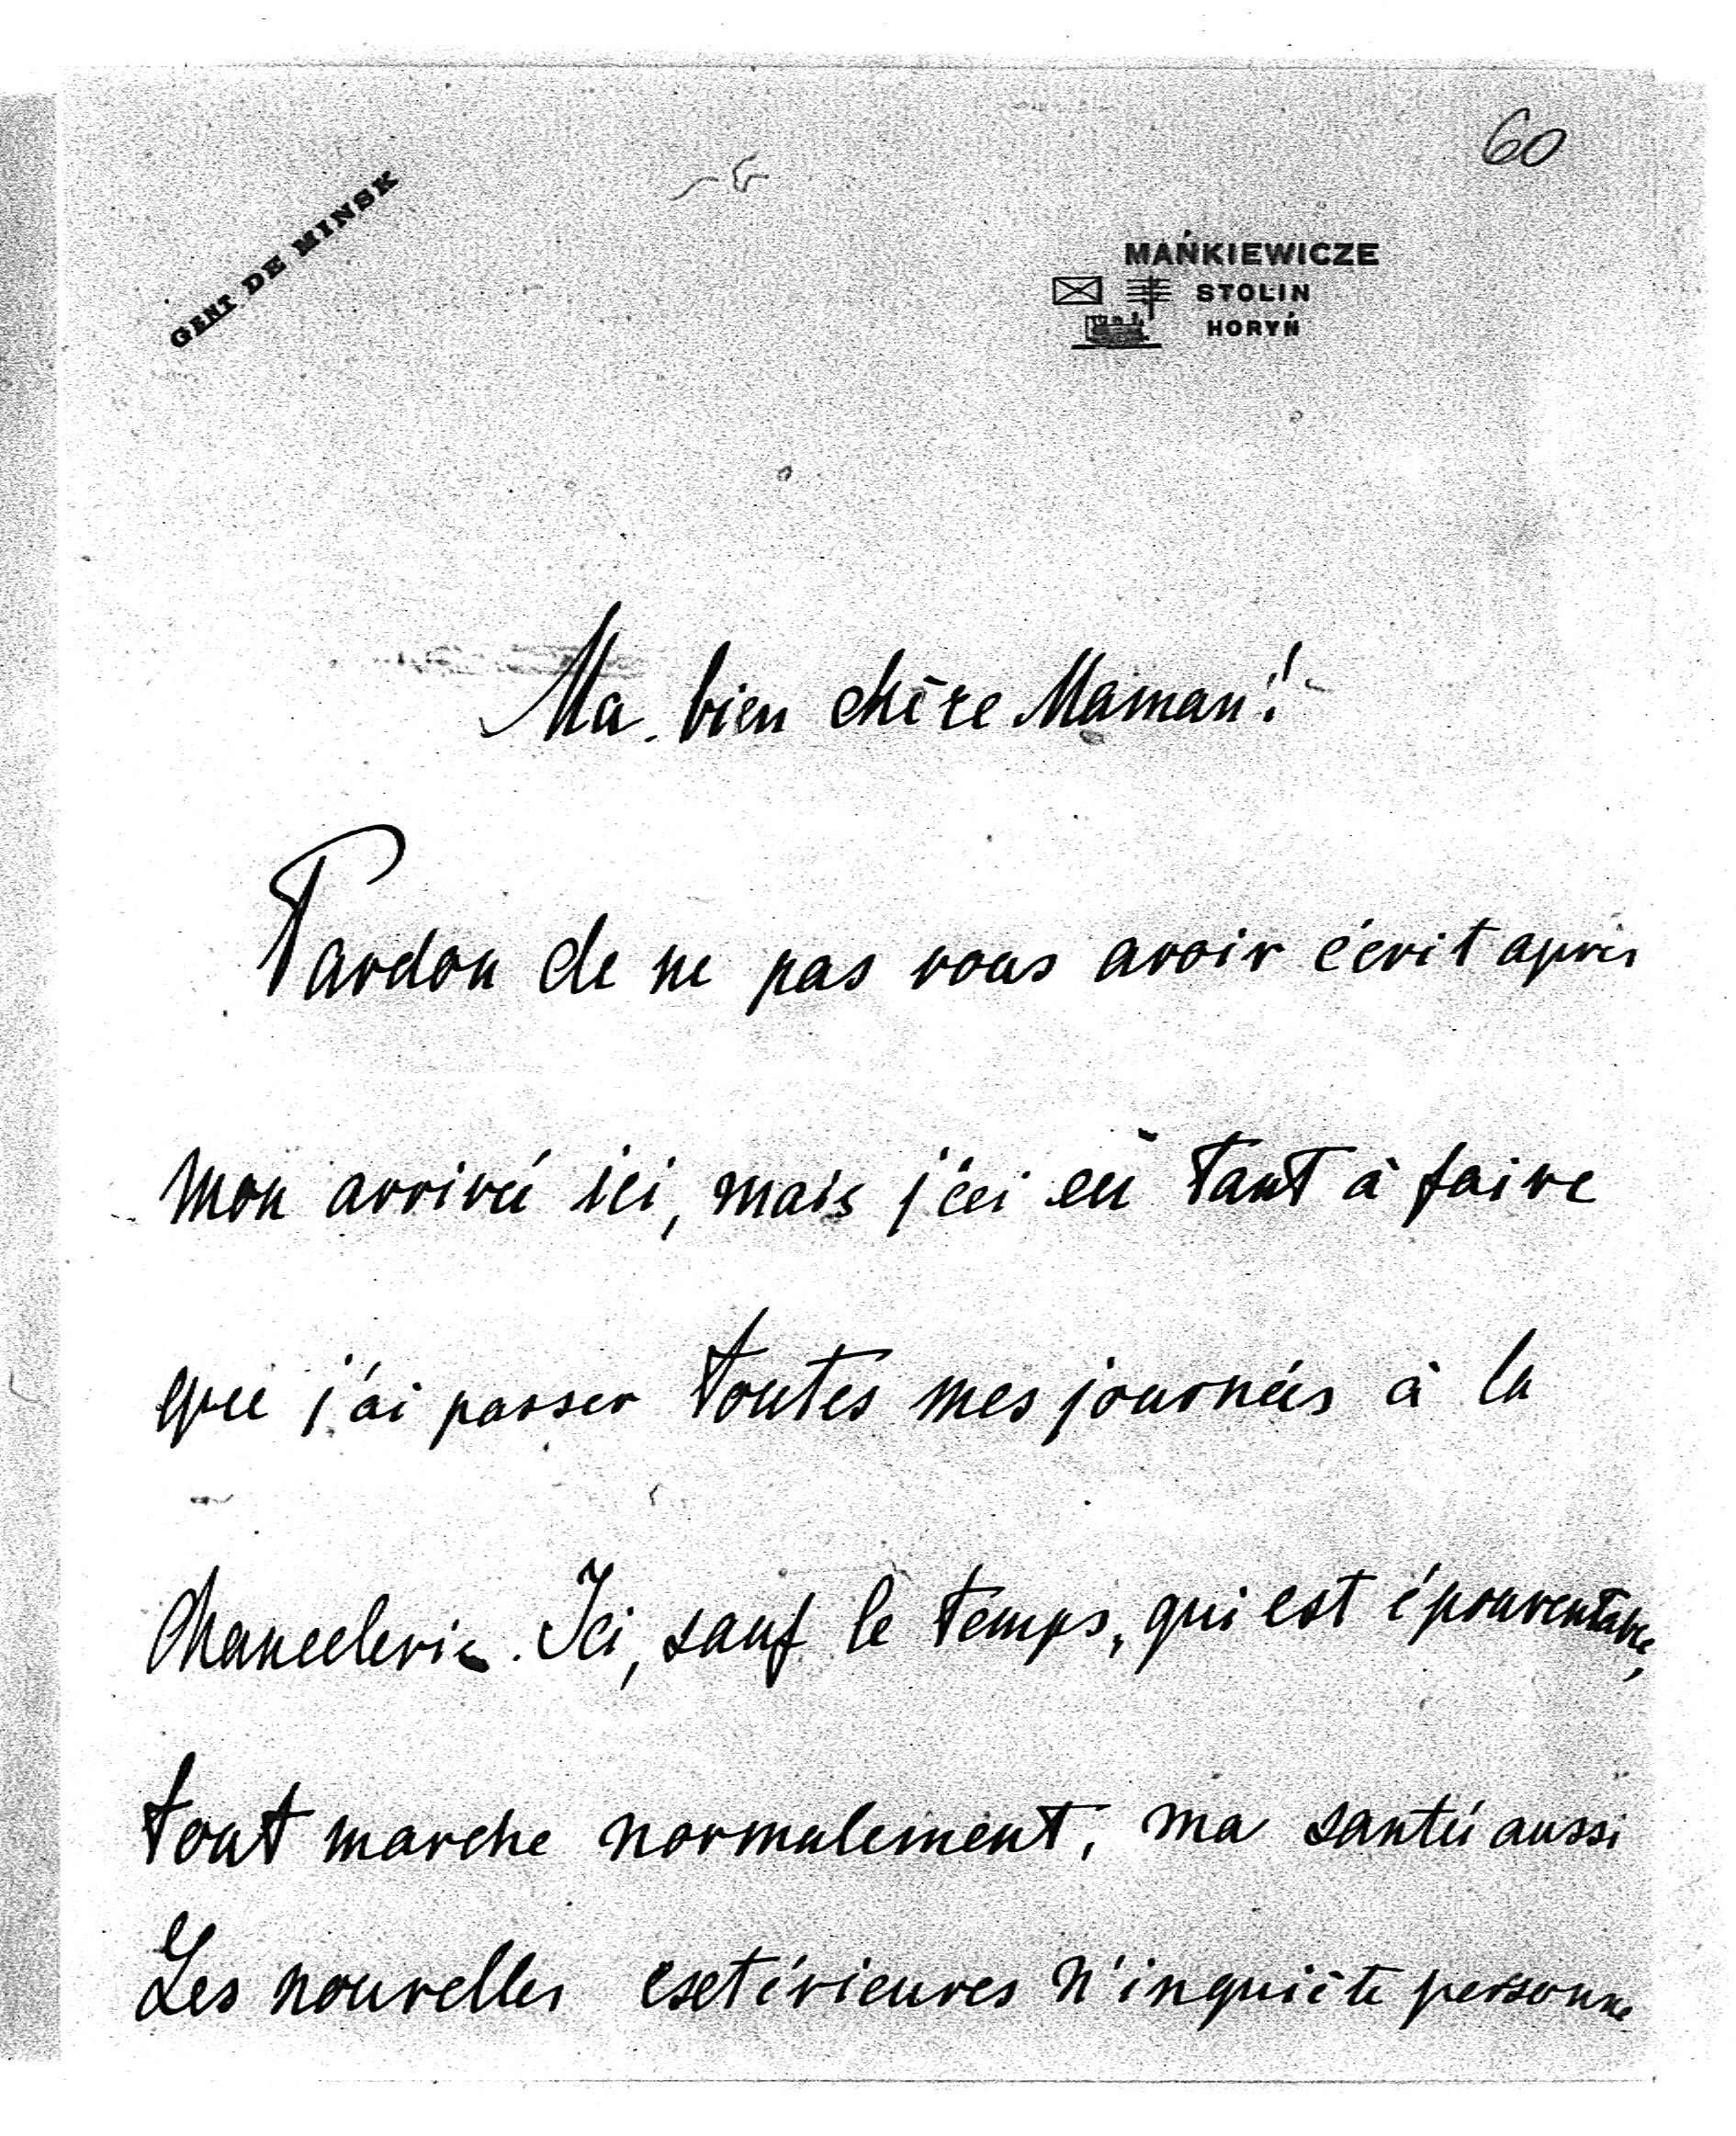 60
GENT DE MINSK
MAŃKIEWICZE
STOLIN
HORYŃ
Ma bien chère Maman!
Pardon de ne pas vous avoir écrit après
mon arrivé ici, mais j'ai eu tant à faire
que j'ai passer toutes mes journéis à la
Chancelerie. Ici, sauf le temps, qui est épouventable,
tout marche normalement, ma santé aussi
Les nouvelles exterieures n'inquiète personne